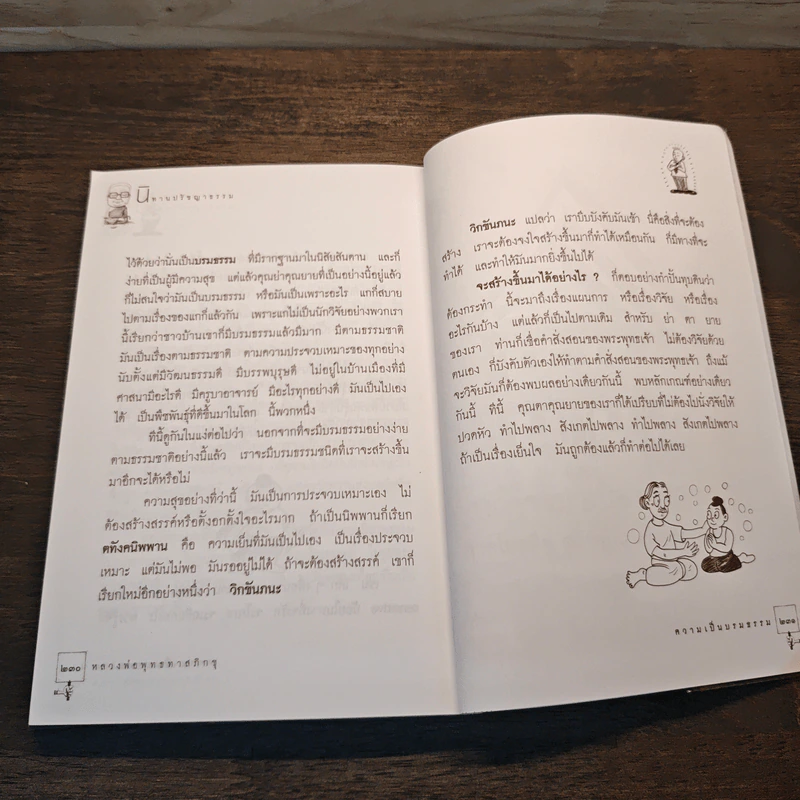 นิทานปรัชญาธรรม
ไว้ด้วยว่านั่นเป็นบรมธรรม ที่มีรากฐานมาในนิสัยสันดาน และก็
ง่ายที่เป็นผู้มีความสุข แต่แล้วคุณย่าคุณยายที่เป็นอย่างนี้อยู่แล้ว
ก็ไม่สนใจว่ามันเป็นบรมธรรม หรือมันเป็นเพราะอะไร แกก็สบาย
ไปตามเรื่องของแกก็แล้วกัน เพราะแกไม่เป็นนักวิจัยอย่างพวกเรา
นี้เรียกว่าชาวบ้านเขาก็มีบรมธรรมแล้วมีมาก มีตามธรรมชาติ
มันเป็นเรื่องตามธรรมชาติ ตามความประจวบเหมาะของทุกอย่าง
นับตั้งแต่มีวัฒนธรรมดี มีบรรพบุรุษดี ไม่อยู่ในบ้านเมืองที่มี
ศาสนามีอะไรดี มีครูบาอาจารย์ มีอะไรทุกอย่างดี มันเป็นไปเอง
ได้ เป็นพืชพันธุ์ที่ดีขึ้นมาในโลก นี้พวกหนึ่ง
ทีนี้ดูกันในแง่ต่อไปว่า นอกจากที่จะมีบรมธรรมอย่างง่าย
ตามธรรมชาติอย่างนี้แล้ว เราจะมีบรมธรรมชนิดที่เราจะสร้างขึ้น
มาอีกจะได้หรือไม่
ความสุขอย่างที่ว่านี้ มันเป็นการประจวบเหมาะเอง ไม่
ต้องสร้างสรรค์หรือตั้งอกตั้งใจอะไรมาก ถ้าเป็นนิพพานก็เรียก
ตทังคนิพพาน คือ ความเย็นที่มันเป็นไปเอง เป็นเรื่องประจวบ
เหมาะ แต่มันไม่พอ มันรออยู่ไม่ได้ ถ้าจะต้องสร้างสรรค์ เขาก็
เรียกใหม่อีกอย่างหนึ่งว่า วิกขัมภนะ
๒๓๐ หลวงพ่อพุทธทาสภิกขุ
วิกขัมภนะ แปลว่า เราบีบบังคับมันเข้า นี่คือสิ่งที่จะต้อง
สร้าง เราจะต้องจงใจสร้างขึ้นมาก็ทำได้เหมือนกัน ก็มีทางที่จะ
ทำได้ และทำให้มันมากยิ่งขึ้นไปได้
จะสร้างขึ้นมาได้อย่างไร ? ก็ตอบอย่างกำปั้นทุบดินว่า
ต้องกระทำ นี้จะมาถึงเรื่องแผนการ หรือเรื่องวิจัย หรือเรื่อง
อะไรกันบ้าง แต่แล้วก็เป็นไปตามเดิม สำหรับ ย่า ตา ยาย
ของเรา ท่านก็เชื่อคำสั่งสอนของพระพุทธเจ้า ไม่ต้องวิจัยด้วย
ตนเอง ก็บังคับตัวเองให้ทำตามคำสั่งสอนของพระพุทธเจ้า ถึงแม้
จะวิจัยมันก็ต้องพบผลอย่างเดียวกันนี้ พบหลักเกณฑ์อย่างเดียว
กันนี้ ทีนี้ คุณตาคุณยายของเราก็ได้เปรียบที่ไม่ต้องไปนั่งวิจัยให้
ปวดหัว ทำไปพลาง สังเกตไปพลาง ทำไปพลาง สังเกตไปพลาง
ถ้าเป็นเรื่องเย็นใจ มันถูกต้องแล้วก็ทำต่อไปได้เลย
ความเป็นบรมธรรม ๒๓๑